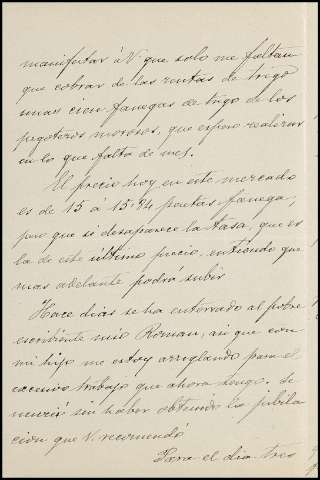 manifestar á V. que solo me faltan
que cobrar de las rentas de trigo
unas cien fanegas de trigo de los
pegoteros morosos, que espero realizar
en lo que falta de mes.
El precio hoy en este mercado
es de 15 á 15-84 pesetas fanega,
pero que si desaparece la tasa, que es
la de este último precio, entiendo que
mas adelante podrá subir
Hace dias se ha enterrado al pobre
escribiente mio Roman, asi que con
mi hijo me estoy arreglando para el
excesivo trabajo que ahora tengo. Se
murió sin haber obtenido la jubila
cion que V. recomendó
Para el dia tres